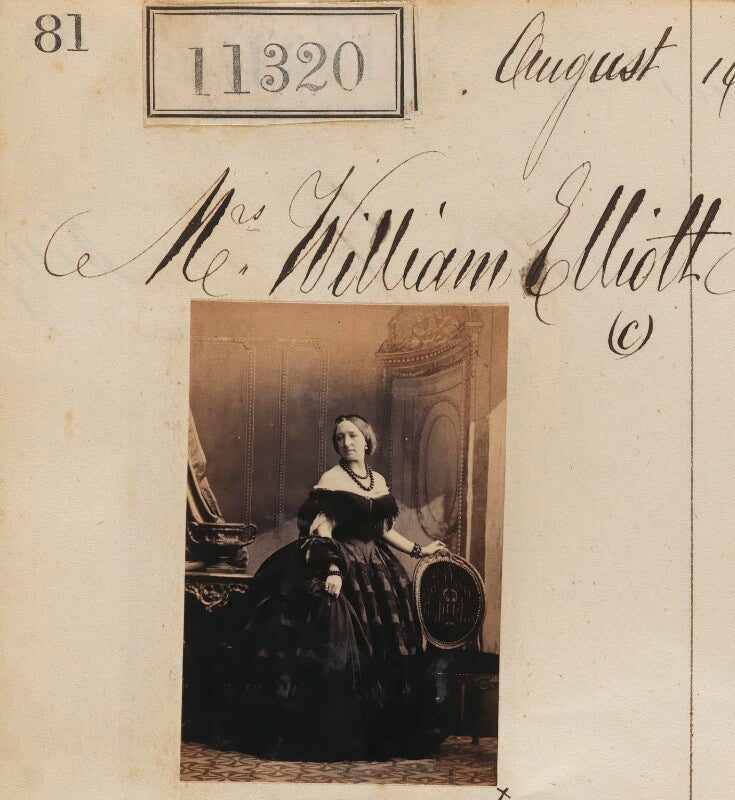 81
11320
August
Mrs. William Elliott
(C)
x